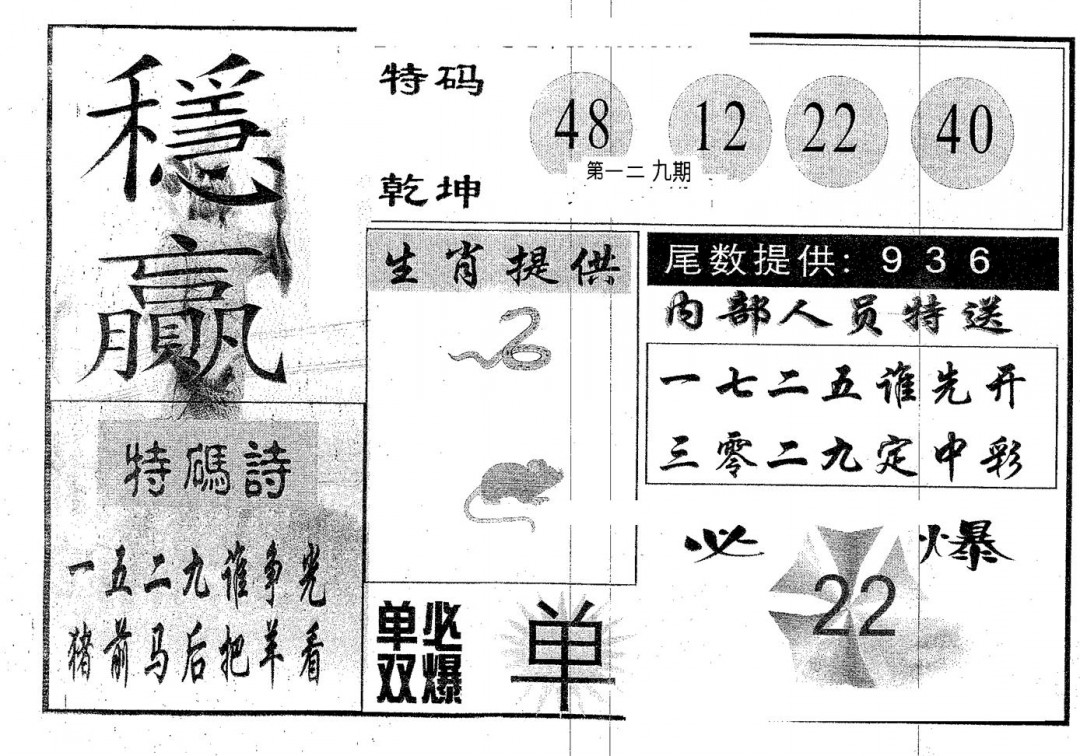 穩
贏
特码
乾坤
48 12 22 40
第一二九期
生肖提供
尾数提供: 9 3 6
内部人员特送
一七二五谁先开
三零二九定中彩
特碼詩
一五二九谁争光
猪前马后把羊看
单双
必爆
单
必 爆
22